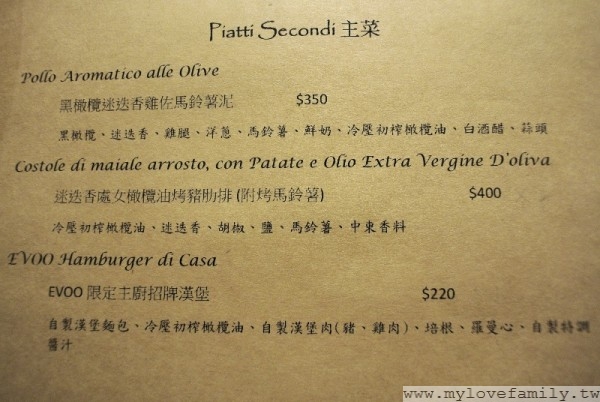 Piatti Secondi 主菜
Pollo Aromatico alle Olive
黑橄欖迷迭香雞佐馬鈴薯泥 $350
黑橄欖、迷迭香、雞腿、洋蔥、馬鈴薯、鮮奶、冷壓初榨橄欖油、白酒醋、蒜頭
Costole di maiale arrosto, con Patate e Olio Extra Vergine D'oliva
迷迭香處女橄欖油烤豬肋排 (附烤馬鈴薯) $400
冷壓初榨橄欖油、迷迭香、胡椒、鹽、馬鈴薯、中東香料
EVOO Hamburger di Casa
EVOO 限定主廚招牌漢堡 $220
自製漢堡麵包、冷壓初榨橄欖油、自製漢堡肉(豬、雞肉)、培根、羅曼心、自製特調
醬汁
www.mylovefamily.tw